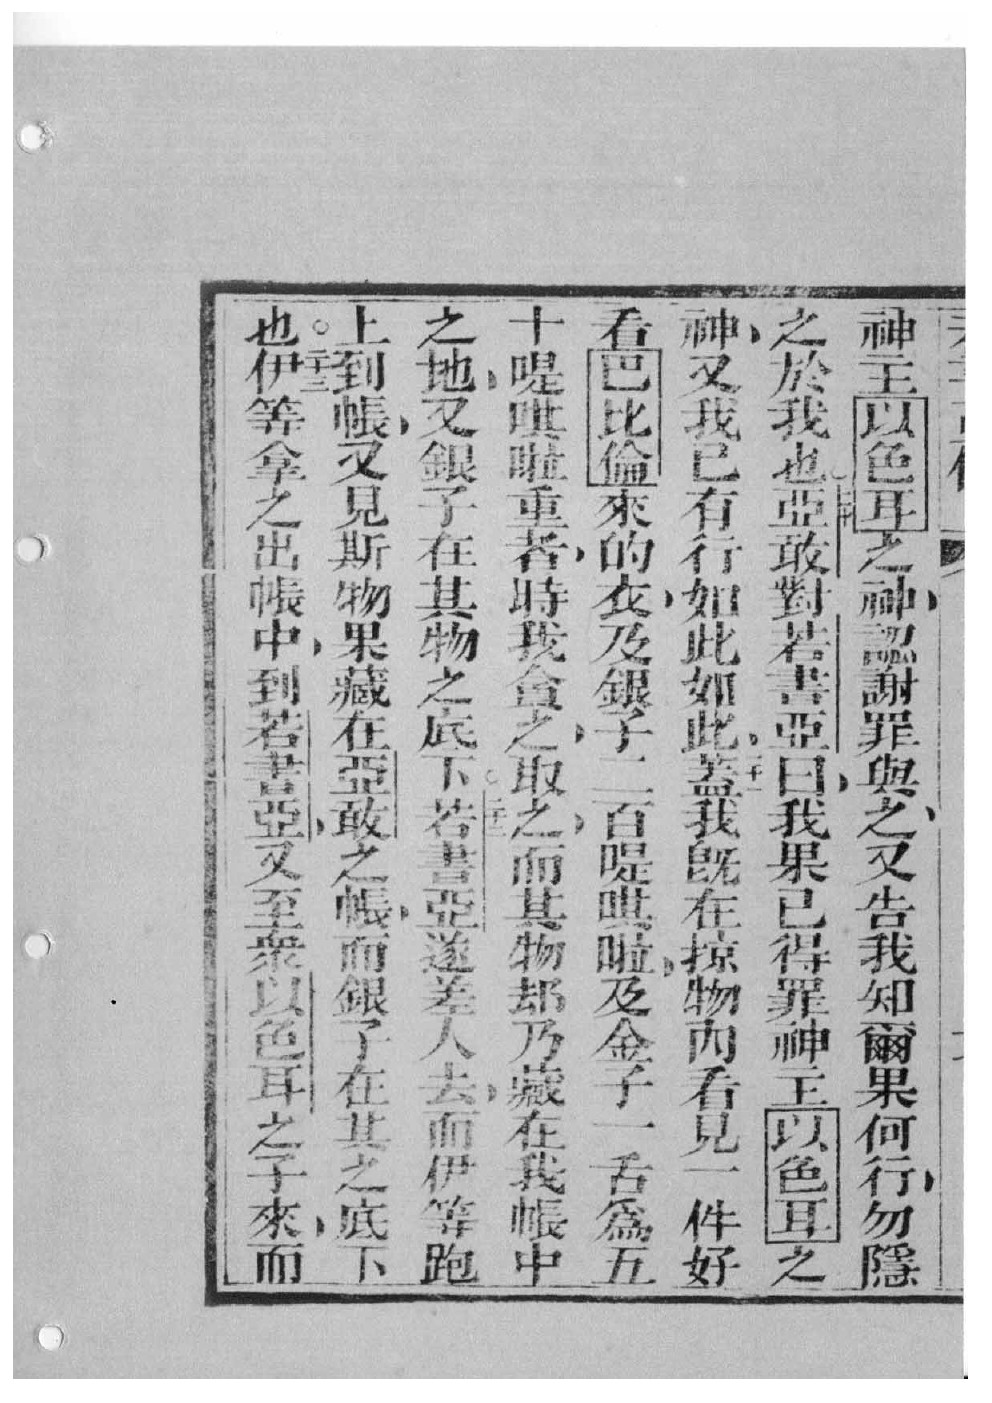 神主以色耳之神認謝罪與之又告我知爾果何行勿隱
之於我也。二十亞敢對若書亞曰我果已得罪神主以色耳之
神又我已有行如此如此。二十一蓋我既在掠物內看見一件好
看巴比倫來的衣及銀子二百喔唭啦及金子一舌為五
十喔唭啦重者時我貪之取之而其物却乃藏在我帳中
之地又銀子在其物之底下。二十二若書亞遂差人去而伊等跑
上到帳又見斯物果藏在亞敢之帳而銀子在其之底下
也。二十三伊等拿之出帳中到若書亞又至眾以色耳之子來而